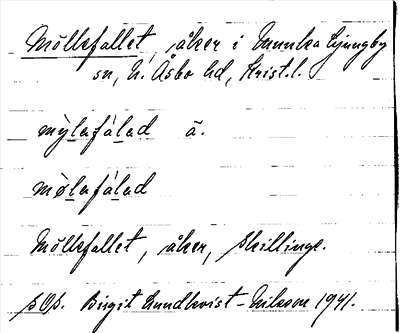 Möllefallet, åker i Munka Ljungby
sn, N. Åsbo hd, Krist.l.
mỳlafálad ä.
mø̀lafálad
Möllefallet, åker, Skillinge.
Birgit Lundkvist-Nilsson 1941.